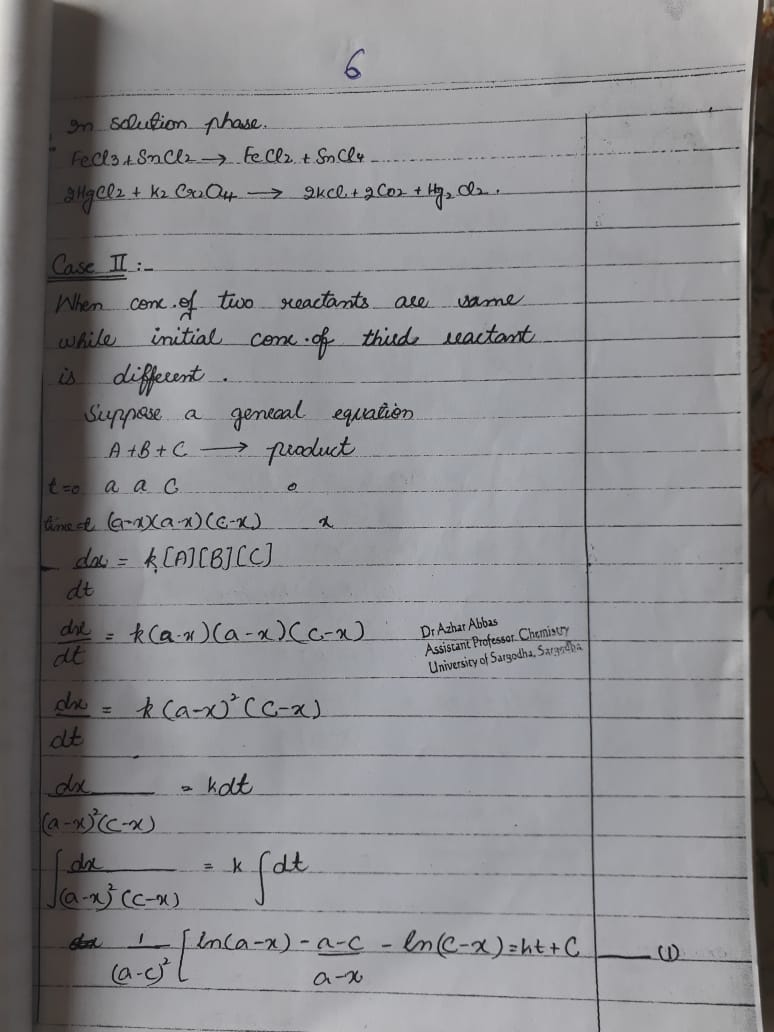 6
In solution phase.
FeCl3 + SnCl2 → FeCl2 + SnCl4
2HgCl2 + K2 Cr2O4 → 2KCl + 2CO2 + Hg2 Cl2.
Case II :-
When conc. of two reactants are same
while initial conc. of third reactant
is different.
Suppose a general equation
A + B + C → product
t=0 a a C 0
time t (a-x)(a-x)(c-x) x
dx/dt = k[A][B][C]
dx/dt = k(a-x)(a-x)(c-x)
Dr Azhar Abbas
Assistant Professor Chemistry
University of Sargodha, Sargodha
dx/dt = k(a-x)²(c-x)
dx/(a-x)²(c-x) = kdt
∫dx/(a-x)²(c-x) = k∫dt
1/(a-c)² [ln(a-x) - a-c/a-x - ln(c-x) = kt + C —— (1)